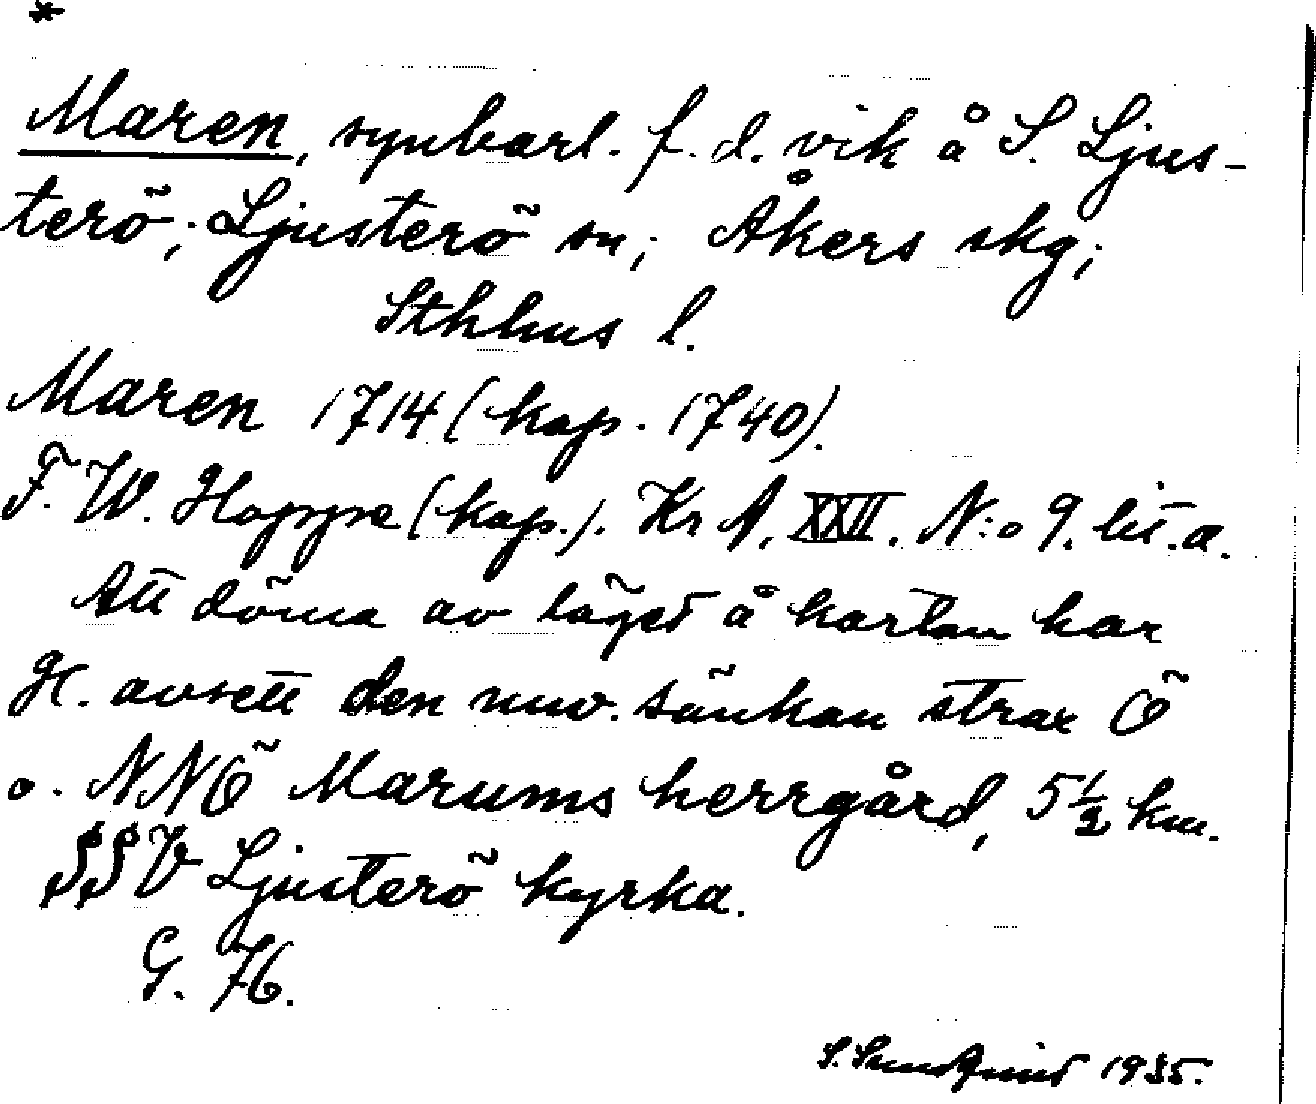 *
Maren, synbarl. f. d. vik å S. Ljus-
terö; Ljusterö sn; Åkers skg;
Sthlms l.
Maren 1714 (kop. 1740).
F. W. Hoppe (kop.). Kr A. XXII. N:o 9. lit. a.
Att döma av läget å kartan har
H. avsett den nuv. sänkan strax Ö
o. NNÖ Marums herrgård, 5 1/2 km.
SSV Ljusterö kyrka.
G. H.
S. Sundquist 1935.